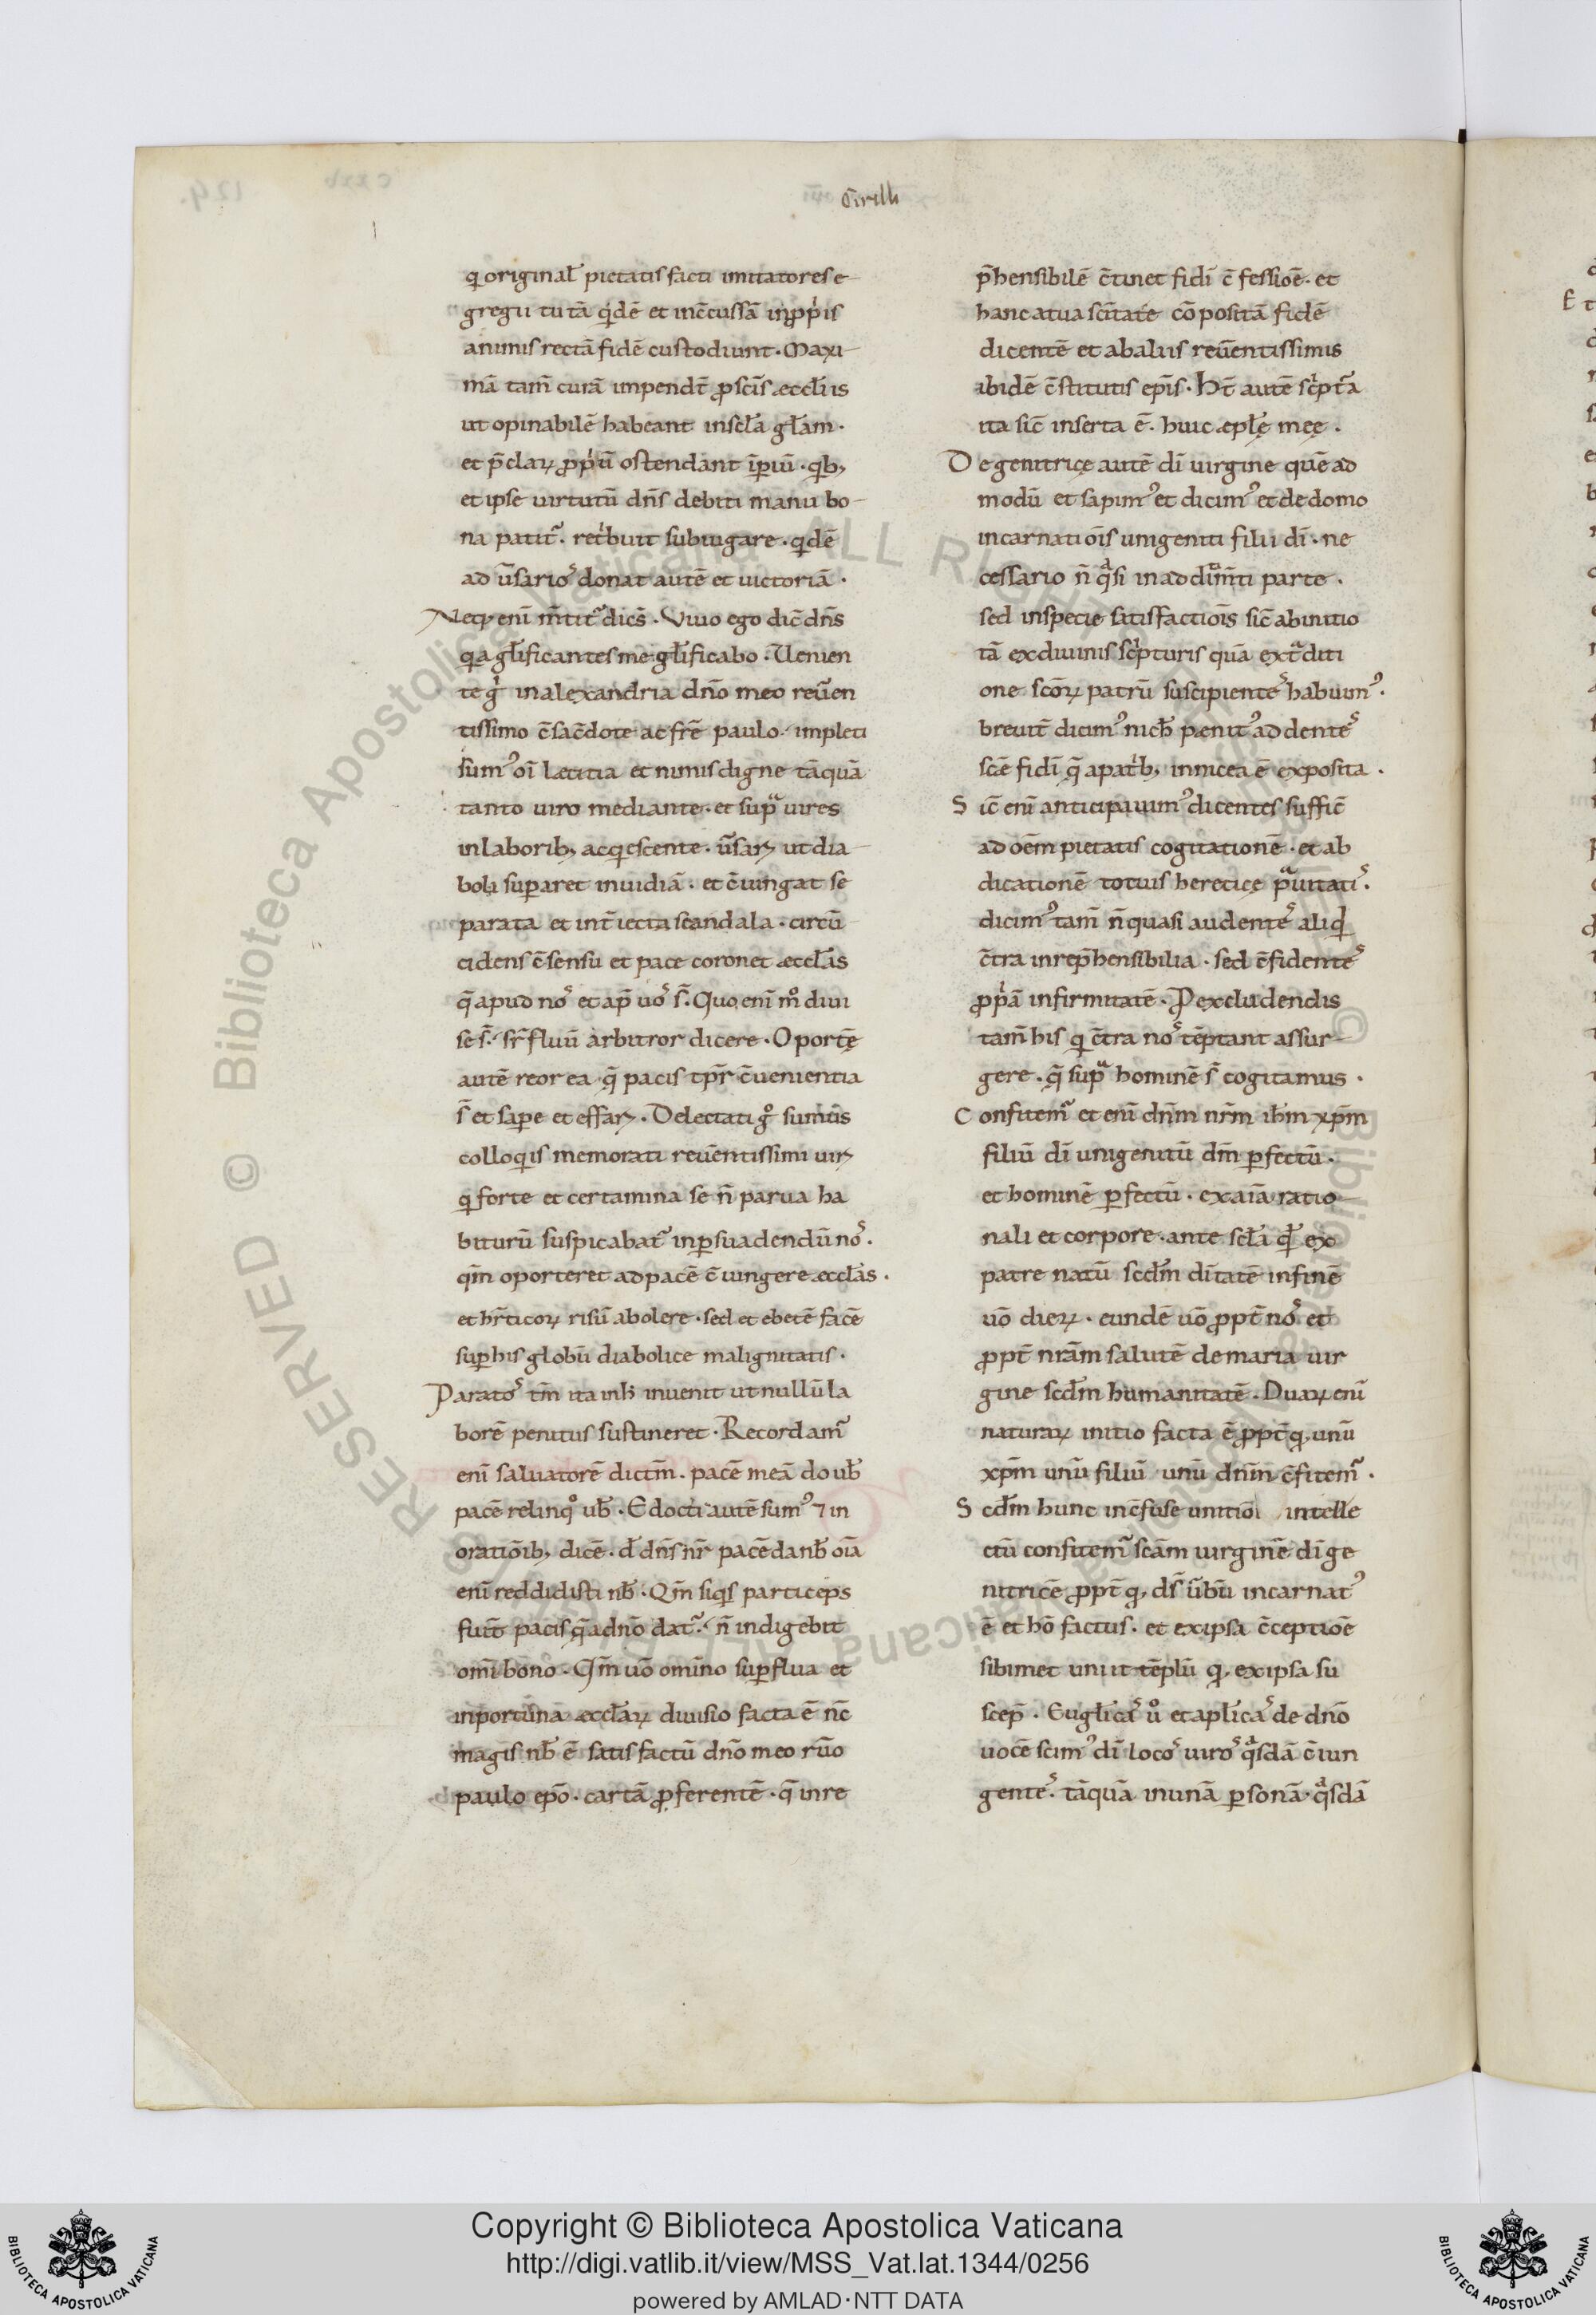 Cirilli
qi original̄ pietatis facti imitatores e
gregii tutā qͥdē et inc̄cussā inꝓpͥis
animis rectā fidē custodiunt. Maxi
mā tam̄ curā impendt̄ ꝓ sc̄is æccl̄iis
ut opinabilē habeant insecl̄a gl̄am.
et p̄claꝝ ꝓpͥū ostendant īperiū. qͥb;
et ipse uirtutū dn̄s debiti manu bo
na patit᷑. retͥbuit subiugare. qͥdē
aduersarioˢ donat autē et uictoriā.
Neqꝫ eni m̄tit᷑ dicēs. Viuo ego dic̄ dn̄s
qͥa gl̄ificantes me gl̄ificabo. Uenien
te gͥ in alexandria dn̄o meo reūen
tissimo c̄sac̄dote ac fr̄e paulo. impleti
sum᾽ oi̅ lætitia et nimis digne tāquā
tanto uiro mediante. et supᵃ uires
in laborib; acqͥescente. ūsaꝝ ut dia
boli suꝑaret inuidiā. et c̄iungat se
parata et int̄iecta scandala. circū
cidens c̄sensu et pace coronet æccl̄as
q̄ apud noˢ et ap̄ uoˢ s̄. Quo eni̅ mͦ diui
se s̄. sr̄fluū arbitror dicere. Oportē
autē reor ea q̄ pacis tp̄r c̄uenientia
s̄ et saꝑe et effaꝝ. Delectati gͦ sumus
colloqͥis memorati reūentissimi uiꝝ
qͥ forte et certamina se n̄ parua ha
biturū suspicabat᷑ inꝑsuadendū noˢ.
qm̄ oporteret ad pacē c̄iungere æccl̄as.
et hr̄ticoꝝ risū abolere. sed et ebetē facē
suꝑ his globū diabolice malignitatis.
Paratoˢ tm̄ ita inh̄ inuenit ut nullū la
borē penitus sustineret. Recordam᷑
eni̅ saluatorē dictm̄. pacē meā do ub̄
pacē relinqͦ ub̄. Edocti autē sum᾽ ⁊ in
oratioīb; dicē. d̄ dn̄s nr̄ pacē da nb̄ oi̅a
eni̅ reddidisti nb̄. Qm̄ siqͥs particeps
fuit̄ pacis q̄ a dn̄o dat᷑. n̄ indigebit
omi̅ bono. Qm̄ uō omi̅no suꝑflua et
inportuna æccl̄aꝝ diuisio facta ē nc̄
magis nb̄ ē satisfactū dn̄o meo rūo
paulo ep̄o. cartā ꝓferentē. q̄ inre
p̄hensibilē c̄tinet fidi̅ c̄fessioē. et
hanc a tua sc̄itate cō positā fidē
dicentē et ab aliis reūentissimis
ibidē c̄stitutis ep̄is. Ht̄ autē scͥpt᷑a
ita sic̄ inserta ē. huic æpl̄ę meę.
De genitrice autē di̅ uirgine quē ad
modū et sapim᾽ et dicim᾽ et de domo
incarnatiōis unigeniti filii di̅. ne
cessario n̄ qᵃsi in addim̄ti parte.
sed in specie satisfactiōis sic̄ ab initio
tā ex diuinis scͥpturis quā ex tᵃditi
one sc̄oꝝ patrū suscipienteˢ habuim᾽.
breuit̄ dicim᾽ nich̄ pænit᾽ addenteˢ
sc̄e fidi̅ q̄ a patͥb; in nicea ē exposita.
Sic̄ eni̅ anticipauim᾽ dicentes suffic̄
ad oēm pietatis cogitationē. et ab
dicationē totius heretice pᵃuitatiˢ.
dicim᾽ tam̄ n̄ quasi audenteˢ aliqͥd
c̄tra inrep̄hensibilia. sed c̄fidenteˢ
ꝓpͥā infirmitatē. P excludendis
tam̄ his qͥ c̄tra noˢ tēptant assur
gere. q̄ supᵃ hominē s̄ cogitamus.
Confitem᷑ et eni̅ dn̄m nr̄m ih̄m xp̄m
filiū di̅ unigenitū dm̄ ꝑfectū.
et hominē ꝑfectū. ex aīa ratio
nali et corpore. ante secl̄a qͥd̄ ex
patre natū scd̄m di̅tatē in finē
uō dieꝝ. eundē uō ꝓpt̄ noˢ et
ꝓpt̄ nr̄am salutē de maria uir
gine scd̄m humanitatē. Duaꝝ eni̅
naturaꝝ initio facta ē ꝓpt̄ qͥ. unū
xp̄m unū filiū unū dn̄m c̄fitem᷑.
Scd̄m hunc inc̄fuse unitiōi intelle
ctū confitem᷑ sc̄am uirginē di̅ ge
nitricē ꝓpt̄ q, ds̄ ūbū incarnat᾽
ē et hō factus. et ex ipsa c̄ceptioē
sibimet uniit tēplū q, ex ipsa su
scep̄. Eugl̄icaˢ uͦ et apl̄icaˢ de dn̄o
uocē scim᾽ di̅ locoˢ uiroˢ qᵃsdā c̄iun
genteˢ. tāquā in unā ꝑsonā. qᵃsdā
Copyright © Biblioteca Apostolica Vaticana
http://digi.vatlib.it/view/MSS_Vat.lat.1344/0256
powered by AMLAD·NTT DATA